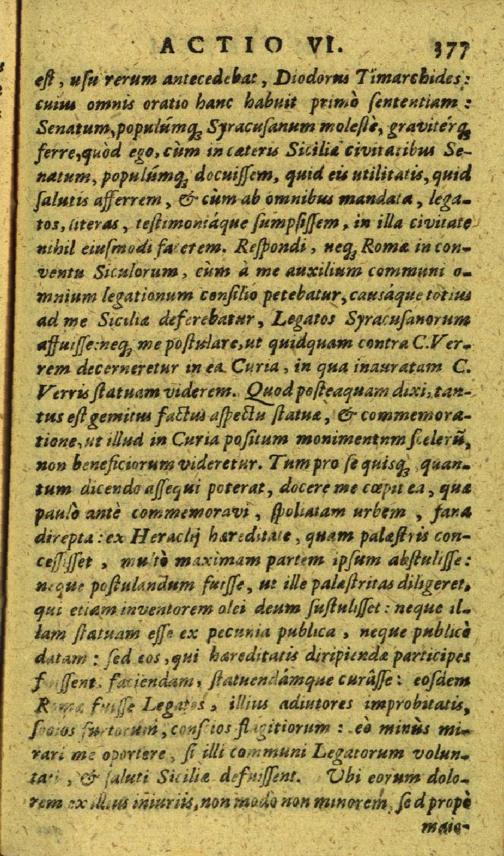 ACTIO VI. 377
eſt, uſu rerum antecedebat, Diodorus Timarchides:
cuius omnis oratio hanc habuit primò ſententiam:
Senatum, populúmq; Syracuſanum moleſtè, gravitérq;
ferre, quòd ego, cùm in cæteris Siciliæ civitatibus Se-
natum, populúmq; docuiſſem, quid eis utilitatis, quid
ſalutis afferrem, & cùm ab omnibus mandata, lega-
tos, literas, teſtimoniáque ſumpſiſſem, in illa civitate
nihil eiuſmodi facerem. Reſpondi, neq; Romæ in con-
ventu Siculorum, cùm à me auxilium communi o-
mnium legationum conſilio petebatur, cauſáque totius
ad me Siciliæ deferebatur, Legatos Syracuſanorum
affuiſſe: neq; me poſtulare, ut quidquam contra C. Ver-
rem decerneretur in ea Curia, in qua inauratam C.
Verris ſtatuam viderem. Quod poſteaquam dixi, tan-
tus eſt gemitus factus aſpectu ſtatuæ, & commemora-
tione, ut illud in Curia poſitum monimentum ſcelerũ,
non beneficiorum videretur. Tum pro ſe quisq; quan-
tum dicendo aſſequi poterat, docere me cœpit ea, quæ
paulò antè commemoravi, ſpoliatam urbem, fana
direpta: ex Heraclij hæreditate, quam palæſtris con-
ceſſiſſet, multò maximam partem ipſum abſtuliſſe:
neque poſtulandum fuiſſe, ut ille palæſtritas diligeret,
qui etiam inventorem olei deum ſuſtuliſſet: neque il-
lam ſtatuam eſſe ex pecunia publica, neque publicè
datam: ſed eos, qui hæreditatis diripiendæ participes
fuiſſent, faciendam, ſtatuendámque curâſſe: eoſdem
Romæ fuiſſe Legatos, illius adiutores improbitatis,
ſocios furtorum, conſcios flagitiorum: eò minùs mi-
rari me oportere, ſi illi communi Legatorum volun-
tati, & ſaluti Siciliæ defuiſſent. Ubi eorum dolo-
rem ex illius iniuriis, non modo non minorem, ſed propè
maio-